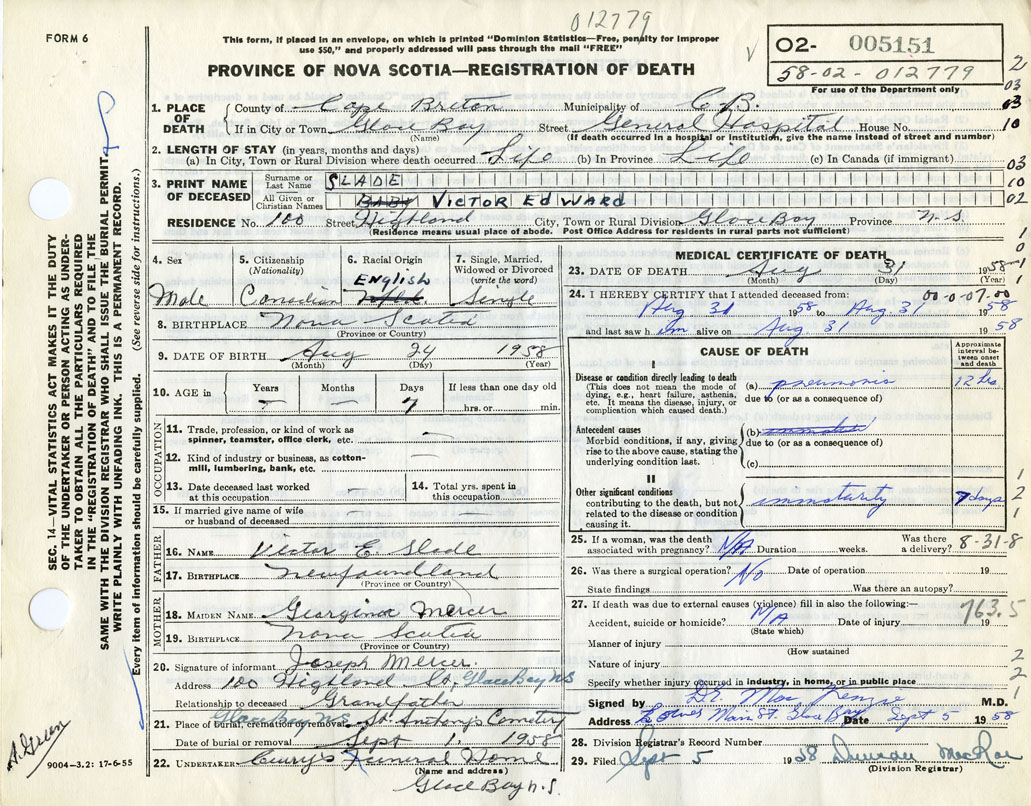 012779
FORM 6
This form, if placed in an envelope, on which is printed "Dominion Statistics—Free, penalty for improper
use $50," and properly addressed will pass through the mail "FREE"
PROVINCE OF NOVA SCOTIA—REGISTRATION OF DEATH
02- 005151
58-02-012779
For use of the Department only
1. PLACE OF DEATH
County of Cape Breton Municipality of C.B.
If in City or Town Glace Bay Street General Hospital House No.
(Name) (If death occurred in a hospital or institution, give the name instead of street and number)
2. LENGTH OF STAY (in years, months and days)
(a) In City, Town or Rural Division where death occurred Life (b) In Province Life (c) In Canada (if immigrant)
3. PRINT NAME OF DECEASED
Surname or Last Name SLADE
All Given or Christian Names BABY VICTOR EDWARD
RESIDENCE No. 100 Street Highland City, Town or Rural Division Glace Bay Province N.S.
(Residence means usual place of abode. Post Office Address for residents in rural parts not sufficient)
4. Sex
Male
5. Citizenship
(Nationality)
Canadian
6. Racial Origin
ENGLISH
7. Single, Married,
Widowed or Divorced
(write the word)
Single
8. BIRTHPLACE Nova Scotia
(Province or Country)
9. DATE OF BIRTH Aug 24 1958
(Month) (Day) (Year)
10. AGE in
Years Months Days If less than one day old
- - 7 hrs. or min.
OCCUPATION
11. Trade, profession, or kind of work as
spinner, teamster, office clerk, etc. —
12. Kind of industry or business, as cotton-
mill, lumbering, bank, etc. —
13. Date deceased last worked
at this occupation —
14. Total yrs. spent in
this occupation
15. If married give name of wife
or husband of deceased —
FATHER
16. NAME Victor E. Slade
17. BIRTHPLACE Newfoundland
(Province or Country)
MOTHER
18. MAIDEN NAME Georgina Mercer
19. BIRTHPLACE Nova Scotia
(Province or Country)
20. Signature of informant Joseph Mercer.
Address 100 Highland St, Glace Bay NS
Relationship to deceased Grandfather
Glace Bay N.S.
21. Place of burial, cremation or removal St Anthony's Cemetery
Date of burial or removal Sept 1, 1958
22. UNDERTAKER Curry's Funeral Home
(Name and address)
Glace Bay N.S.
MEDICAL CERTIFICATE OF DEATH
23. DATE OF DEATH Aug 31 1958
(Month) (Day) (Year)
24. I HEREBY CERTIFY that I attended deceased from: 00-0-07-00
Aug 31 1958 to Aug 31 1958
and last saw him alive on Aug 31 1958
CAUSE OF DEATH
Approximate
interval be-
tween onset
and death
I
Disease or condition directly leading to death
(This does not mean the mode of
dying, e.g., heart failure, asthenia,
etc. It means the disease, injury, or
complication which caused death.)
(a) pneumonia 12 hrs
due to (or as a consequence of)
Antecedent causes
Morbid conditions, if any, giving
rise to the above cause, stating the
underlying condition last.
(b)
due to (or as a consequence of)
(c)
II
Other significant conditions
contributing to the death, but not
related to the disease or condition
causing it.
immaturity 7 days
25. If a woman, was the death
associated with pregnancy? N/A Duration weeks.
Was there
a delivery? 8-31-8
26. Was there a surgical operation? No Date of operation 19
State findings Was there an autopsy?
27. If death was due to external causes (violence) fill in also the following:—
763.5
Accident, suicide or homicide? N/A Date of injury 19
(State which)
Manner of injury
(How sustained
Nature of injury
Specify whether injury occurred in industry, in home, or in public place
Signed by Dr. MacKenzie M.D.
Address Main St. Glace Bay Date Sept 5 1958
28. Division Registrar's Record Number
29. Filed Sept 5 1958 Duncan MacRae
(Division Registrar)
SEC. 14—VITAL STATISTICS ACT MAKES IT THE DUTY
OF THE UNDERTAKER OR PERSON ACTING AS UNDER-
TAKER TO OBTAIN ALL THE PARTICULARS REQUIRED
IN THE "REGISTRATION OF DEATH" AND TO FILE THE
SAME WITH THE DIVISION REGISTRAR WHO SHALL ISSUE THE BURIAL PERMIT.
WRITE PLAINLY WITH UNFADING INK. THIS IS A PERMANENT RECORD.
Every item of information should be carefully supplied. (See reverse side for instructions.)
9004-3.2: 17-6-55
2
03
03
10
03
10
02
1
0
1
1
1
2
1
2
2
1